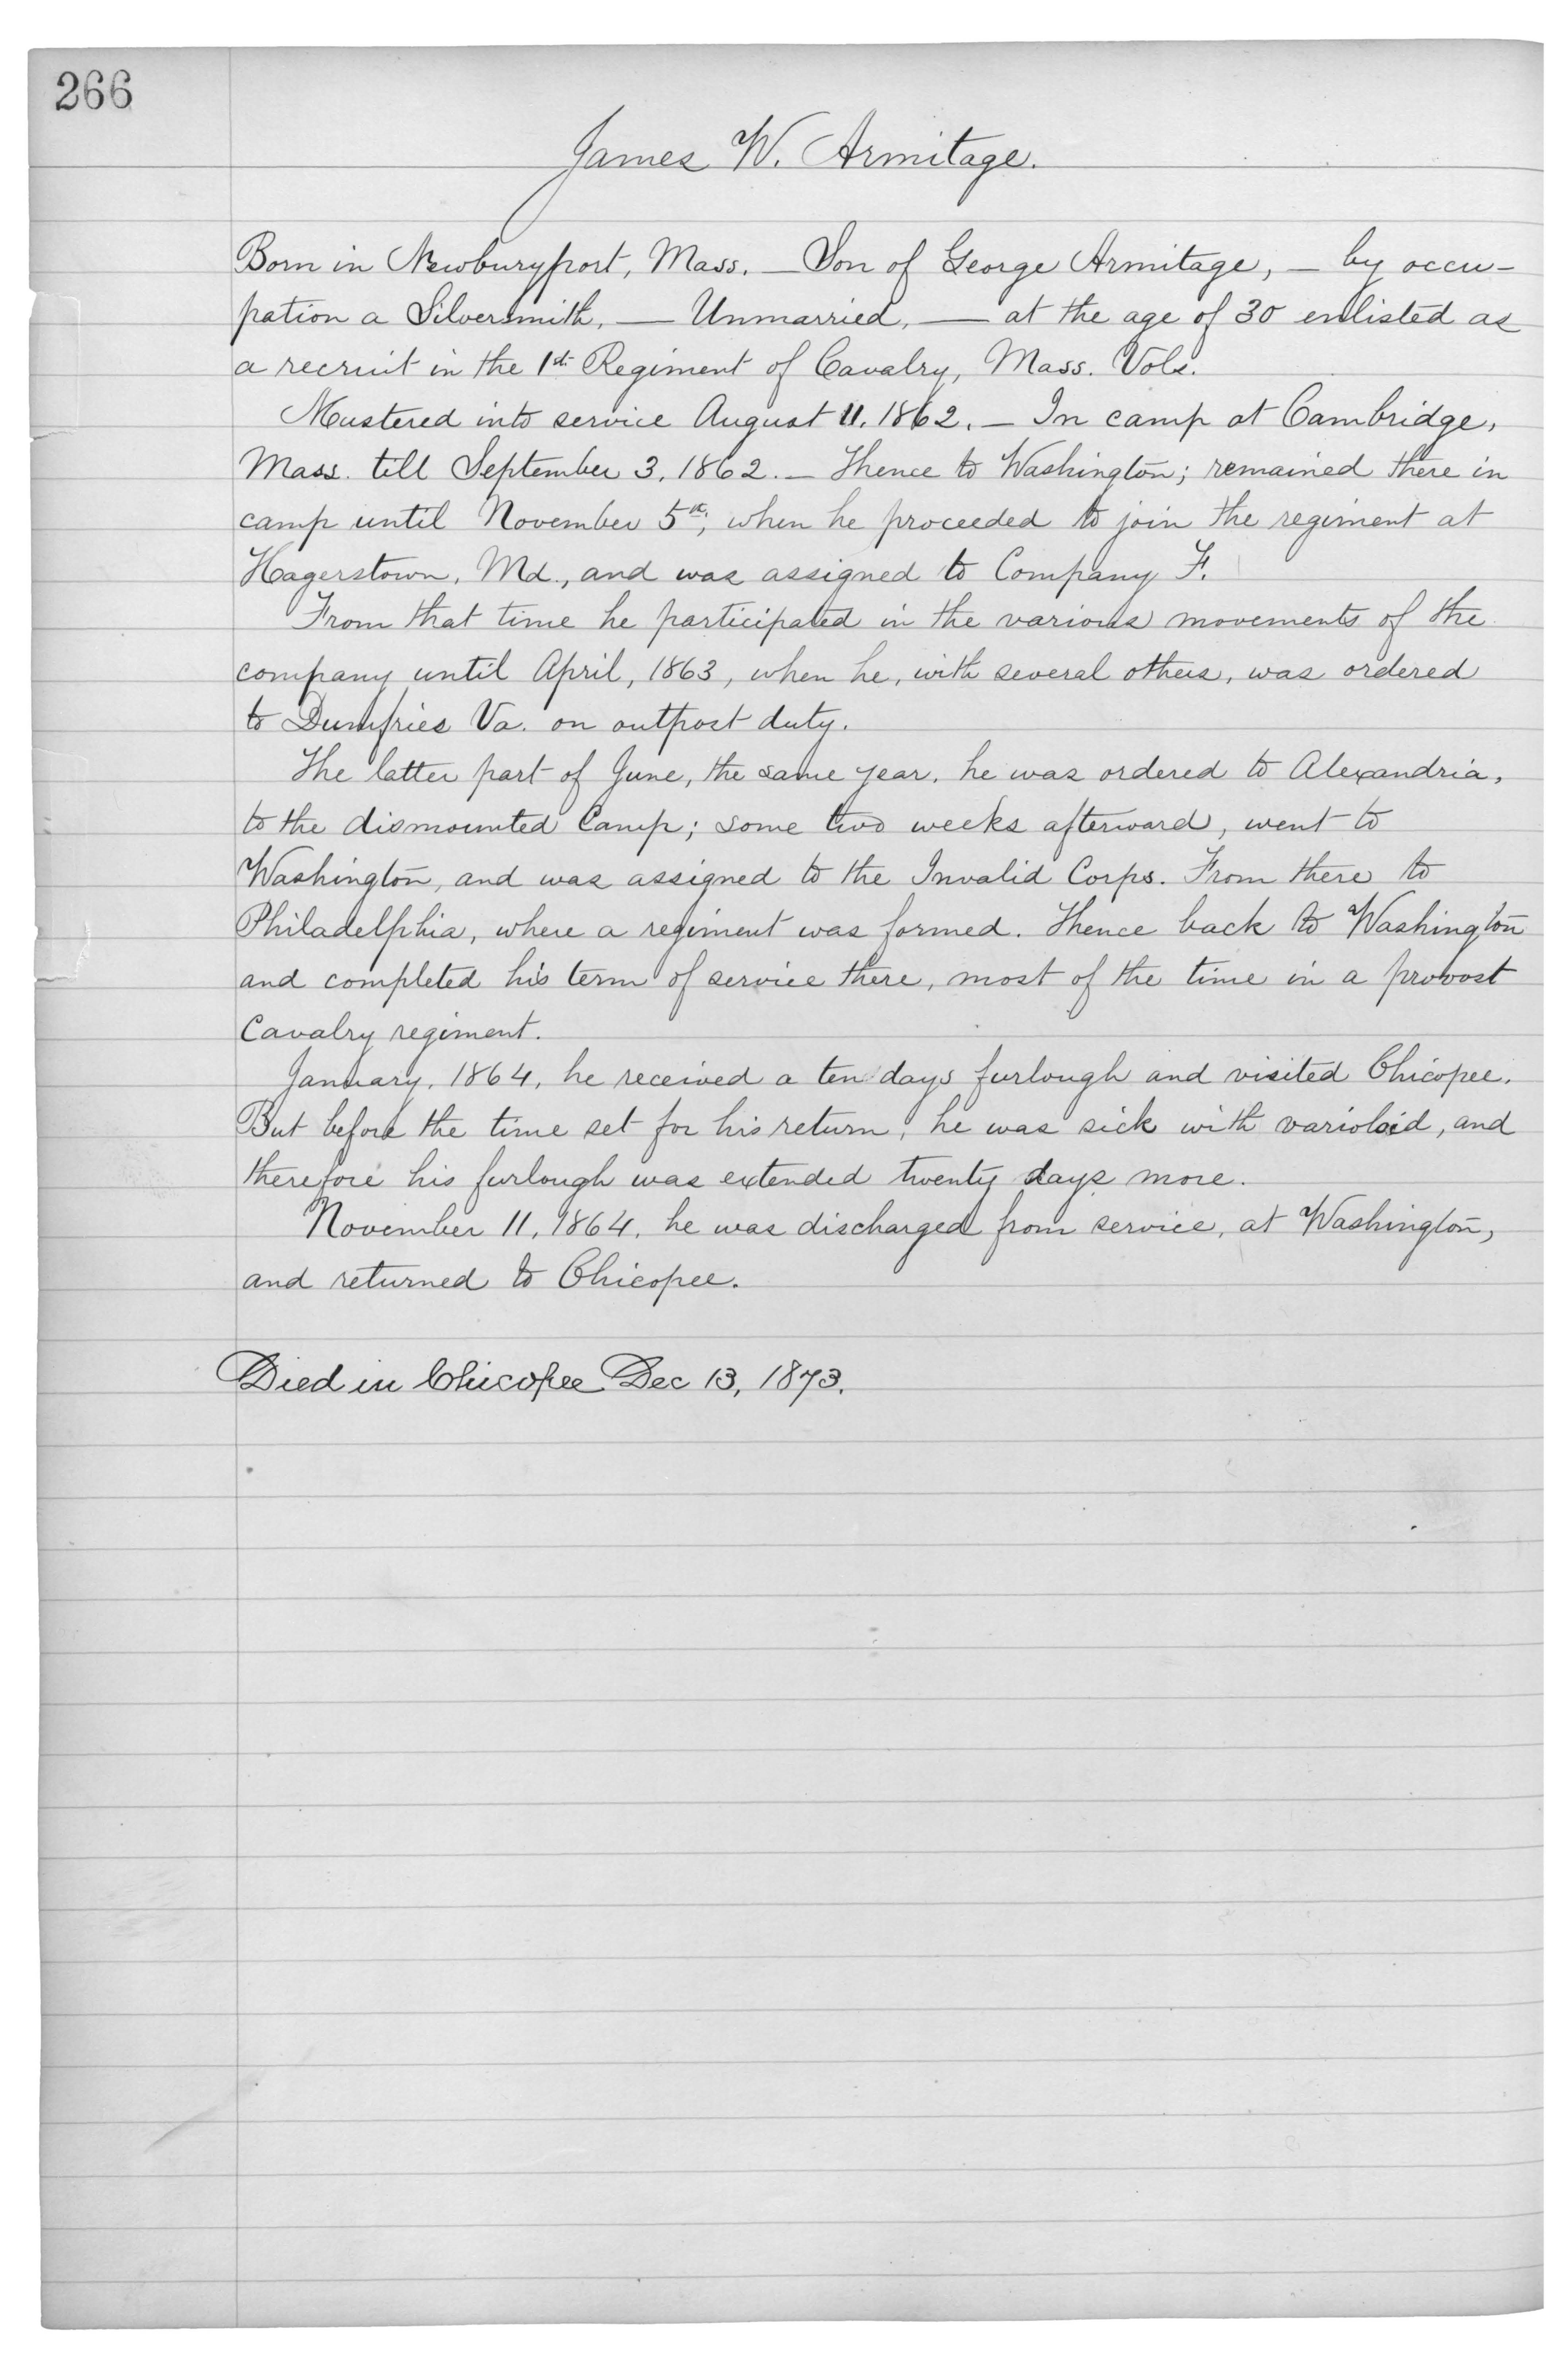 266
James W. Armitage.
Born in Newburyport, Mass. — Son of George Armitage, — by occu-
pation a Silversmith, — Unmarried, — at the age of 30 enlisted as
a recruit in the 1st Regiment of Cavalry, Mass. Vols.
Mustered into service August 11, 1862. — In camp at Cambridge,
Mass. till September 3, 1862. — Thence to Washington; remained there in
camp until November 5th, when he proceeded to join the regiment at
Hagerstown, Md., and was assigned to Company F.
From that time he participated in the various movements of the
company until April, 1863, when he, with several others, was ordered
to Dumfries Va. on outpost duty.
The latter part of June, the same year, he was ordered to Alexandria,
to the dismounted Camp; some two weeks afterward, went to
Washington, and was assigned to the Invalid Corps. From there to
Philadelphia, where a regiment was formed. Thence back to Washington
and completed his term of service there, most of the time in a provost
Cavalry regiment.
January, 1864, he received a ten days furlough and visited Chicopee.
But before the time set for his return, he was sick with varioloid, and
therefore his furlough was extended twenty days more.
November 11, 1864, he was discharged from service, at Washington,
and returned to Chicopee.
Died in Chicopee Dec 13, 1873.